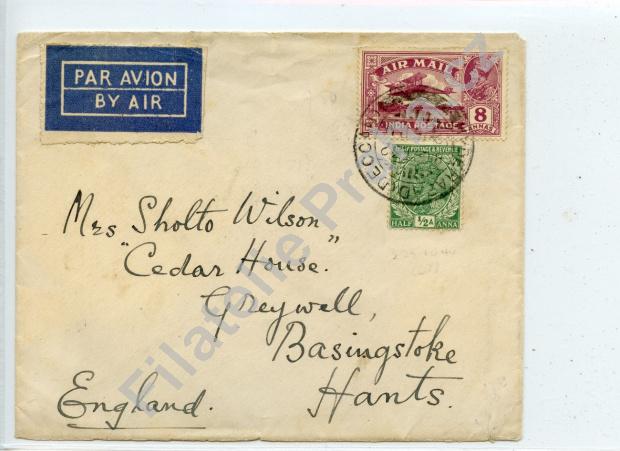 PAR AVION
BY AIR
AIR MAIL
INDIA POSTAGE
8
ANNAS
INDIA POSTAGE & REVENUE
HALF ½A ANNA
Mrs Sholto Wilson
"Cedar House."
Greywell,
Basingstoke
Hants.
England.